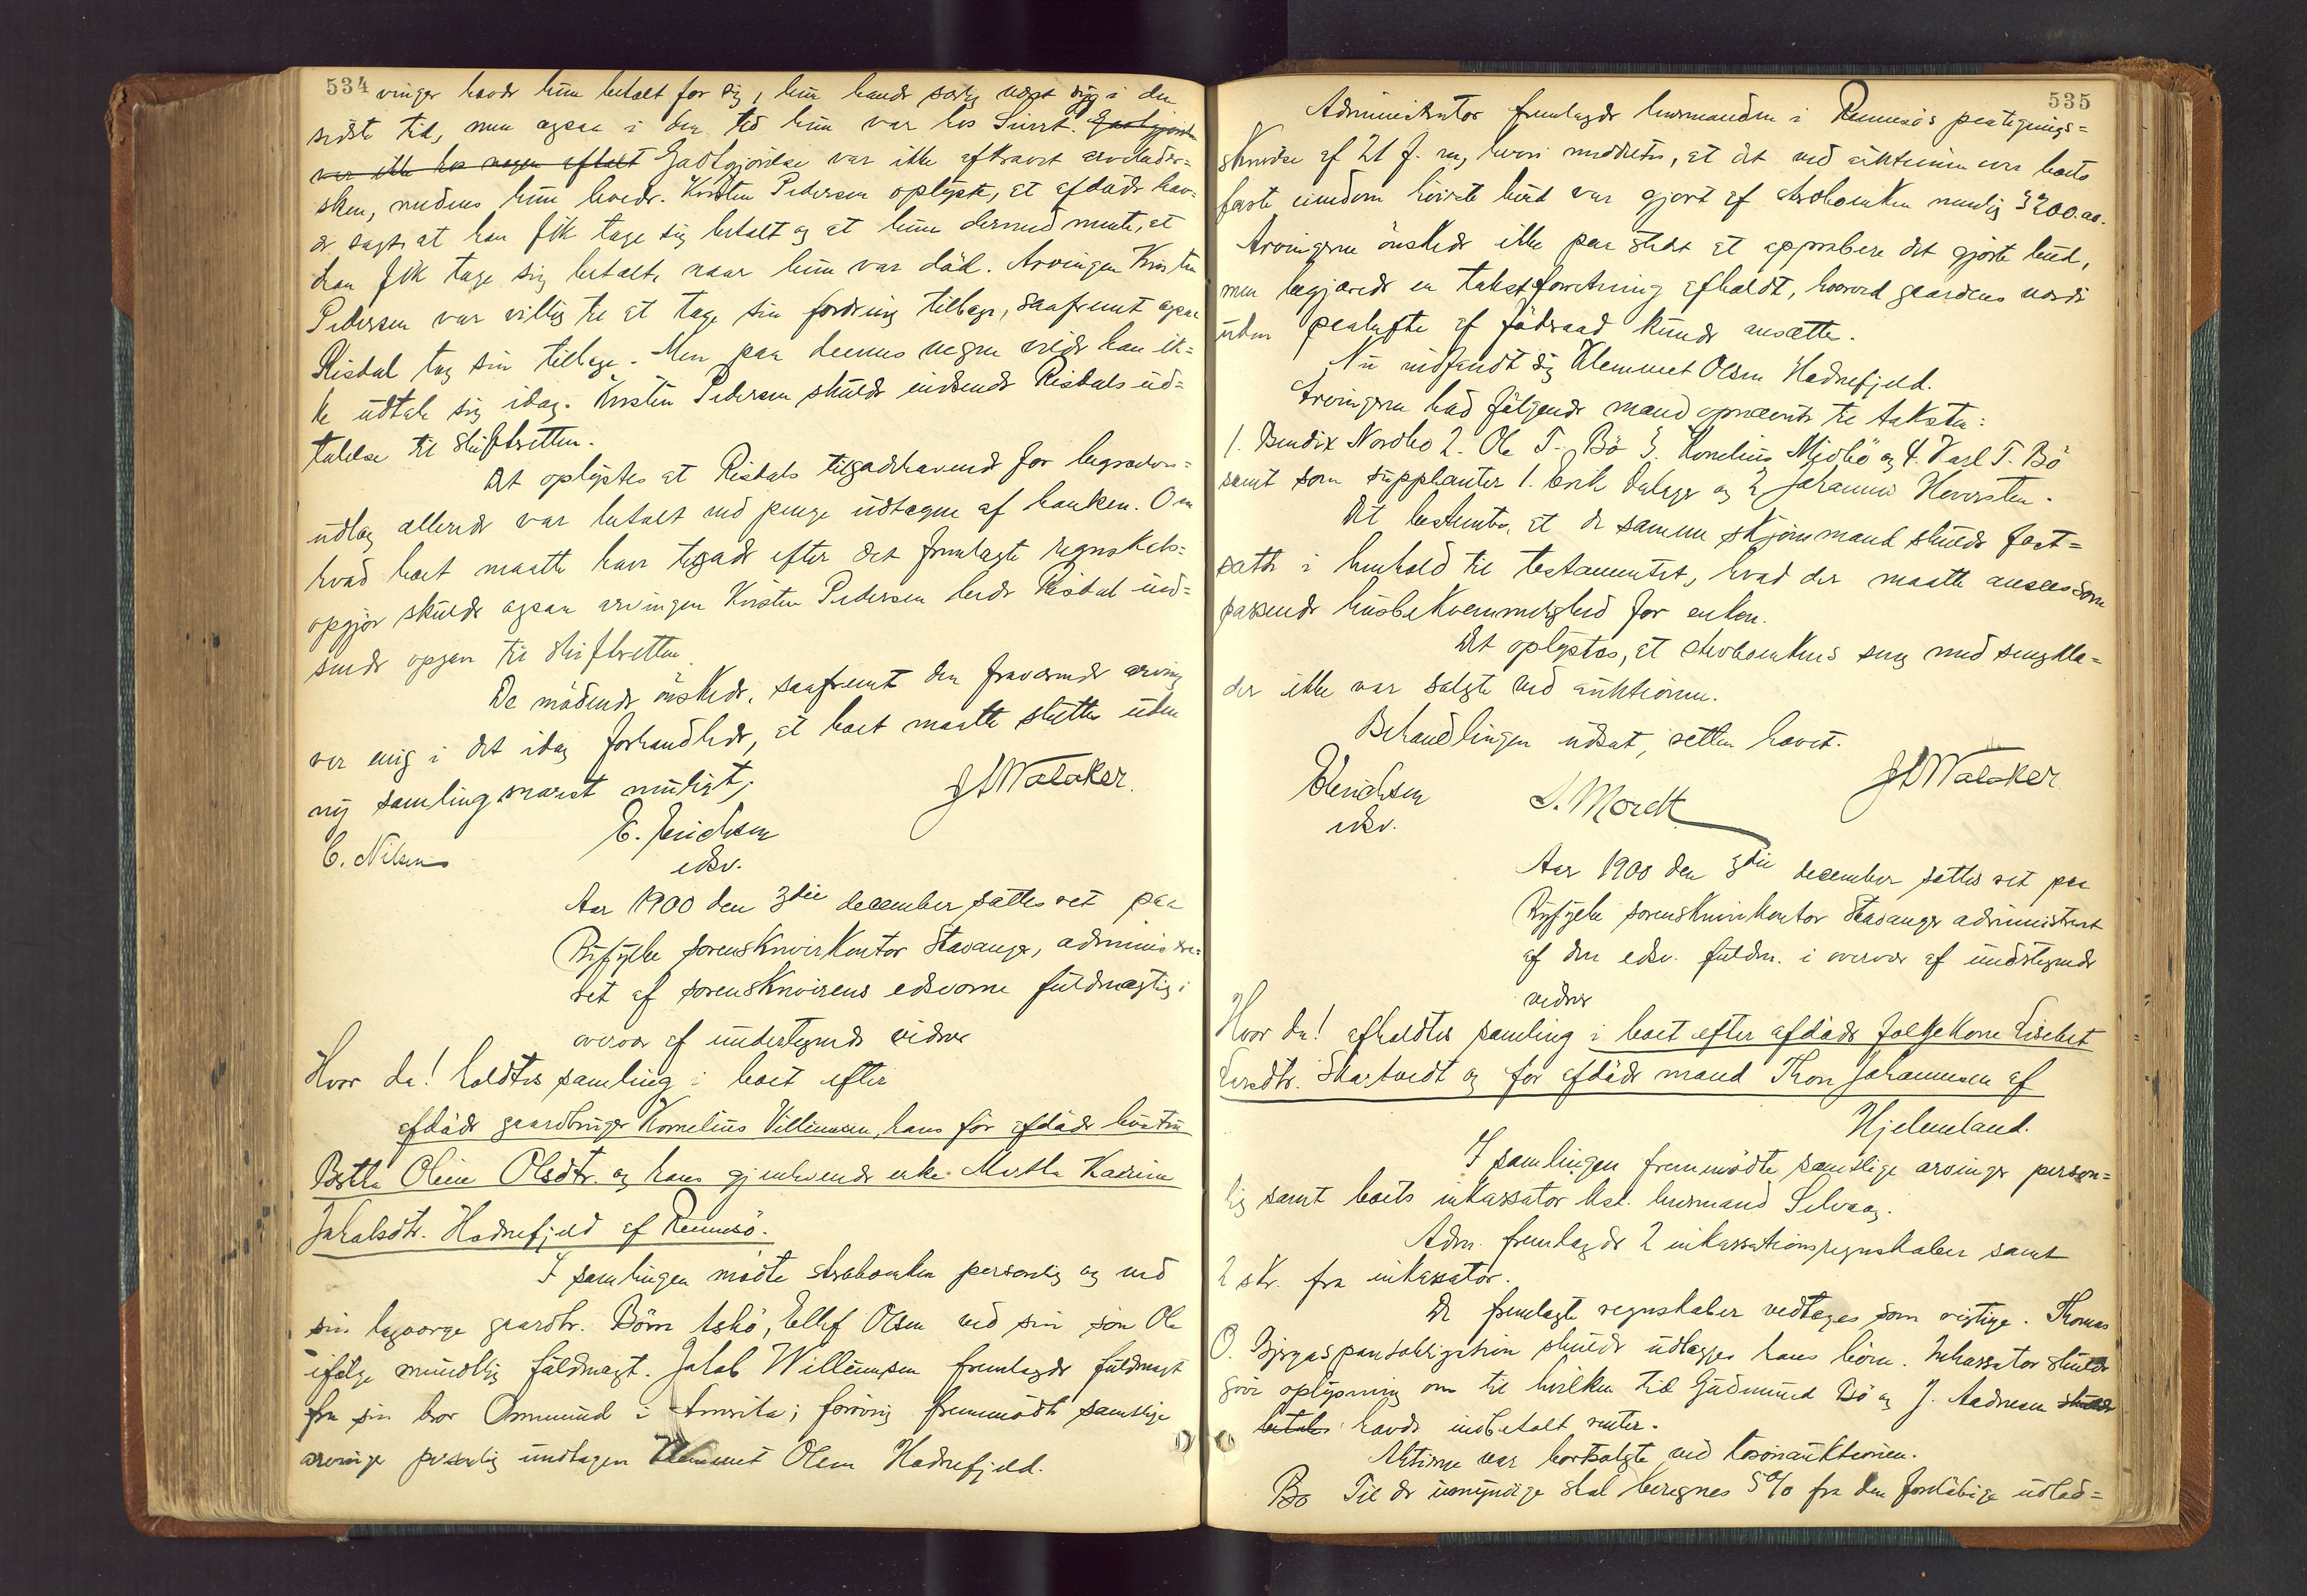 534
vinger havde hun betalt for sig, hun havde særlig været syg i den
sidste tid, men ogsaa i den tid hun var hos Sivert. Godtgjørelse
var ikke hos nogen aftalt Godtgjörelse var ikke afkrævet arveladers-
sken, medens hun levede. Kristen Pedersen oplyste, at afdöde hav-
de sagt at han fik tage sig betalt og at hun dermed mente, at
han fik tage sig betalt, naar hun var död. Arvingen Kristen
Pedersen var villig til at tage sin fordring tilbage, saafremt ogsaa
Risdal tog sin tilbage. Men paa dennes vegne vilde han ik-
ke udtale sig idag. Kristen Pedersen skulde indsende Risdals ud-
talelse til skifteretten.
Det oplystes at Risdals tilgodehavende for begravelses-
udlæg allerede var betalt med penge udtagne af banken. Om
hvad boet maatte have tilgode efter det fremlagte regnskabs-
opgjör skulde ogsaa arvingen Kristen Pedersen bede Risdal ind-
sende opgave til skifteretten.
De mödende önskede, saafremt den fraværende arving
var enig i det idag forhandlede, at boet maatte sluttes uden
ny samling snarest muligst.
J S Walaker.
C. Nilsen
E. Erichsen
edsv.
Aar 1900 den 3die december sattes ret paa
Ryfylke sorenskriverkontor Stavanger, administre-
ret af sorenskriverens edsvorne fuldmægtig i
overvær af undertegnede vidner
Hvor da! holdtes samling i boet efter
afdöde gaardbruger Kornelius Villumsen, hans för afdöde hustru
Berthe Oline Olsdtr. og hans gjenlevende enke Marthe Katrine
Jakobsdtr. Hodnefjeld af Rennesö.
I samlingen mödte stervboenken personlig og med
sin lagværge gaardbr. Börre Askö, Ellef Olsen ved sin sön Ole
ifölge mundtlig fuldmagt. Jakob Willumsen fremlagde fuldmagt
fra sin bror Osmund i Amerika; forövrig fremmödte samtlige
arvinger personlig undtagen Klemmet Olsen Hodnefjeld.
535
Administrator fremlagde lensmanden i Rennesös paategnings-
skrivelse af 21 f. m., hvori meddeltes, at det ved auktionen over boets
faste eiendom höieste bud var gjort af stervboenken nemlig 3200.00.
Arvingerne önskede ikke paa stedet at approbere det gjorte bud,
men begjærede en takstforretning afholdt, hvorved gaardens værdi
uden paahefte af föderaad kunde ansættes.
Nu indfandt sig Klemmet Olsen Hodnefjeld.
Arvingerne bad fölgende mænd opnævnte til taksten:
1. Bendix Nordbö 2. Ole T. Bö 3. Kornelius Mjölbö og 4. Karl T. Bö
samt som supplanter 1. Erik Dalager og 2 Johannes Hewersten.
Det bestemtes, at de samme skjönsmænd skulde fast-
sætte i henhold til testamentet, hvad der maatte ansees som
passende husbekvemmelighed for enken.
Det oplystes, at stervboenkens seng med sengklæ-
der ikke var solgte ved auktionen.
Behandlingen udsat, retten hævet.
J S Walaker.
E Erichsen
edsv.
S. Mordt
Aar 1900 den 3die december sattes ret paa
Ryfylke sorenskriverkontor Stavanger administreret
af den edsv. fuldm. i overvær af undertegnede
vidner
Hvor da! afholdtes samling i boet efter afdöde folgekone Lisebet
Larsdtr. Skartvedt og för afdöde mand Thore Johannesen af
Hjelmeland.
I samlingen fremmödte samtlige arvinger person-
lig samt boets inkassator kst. lensmand Selvaag.
Adm. fremlagde 2 inkassationsregnskaber samt
2 skr. fra inkassator.
De fremlagte regnskaber vedtoges som rigtige. Thomas
O. Bjergas pantobligation skulde udlægges hans börn. Inkassator skulde
give oplysning om til hvilken tid Gudmund Bö og J. Aadnesen skulde
betale havde indbetalt renter.
Aktierne var bortsolgte ved lösöreauktionen.
Bo Til de umyndige skal beregnes 5% fra den foreløbige udlod-